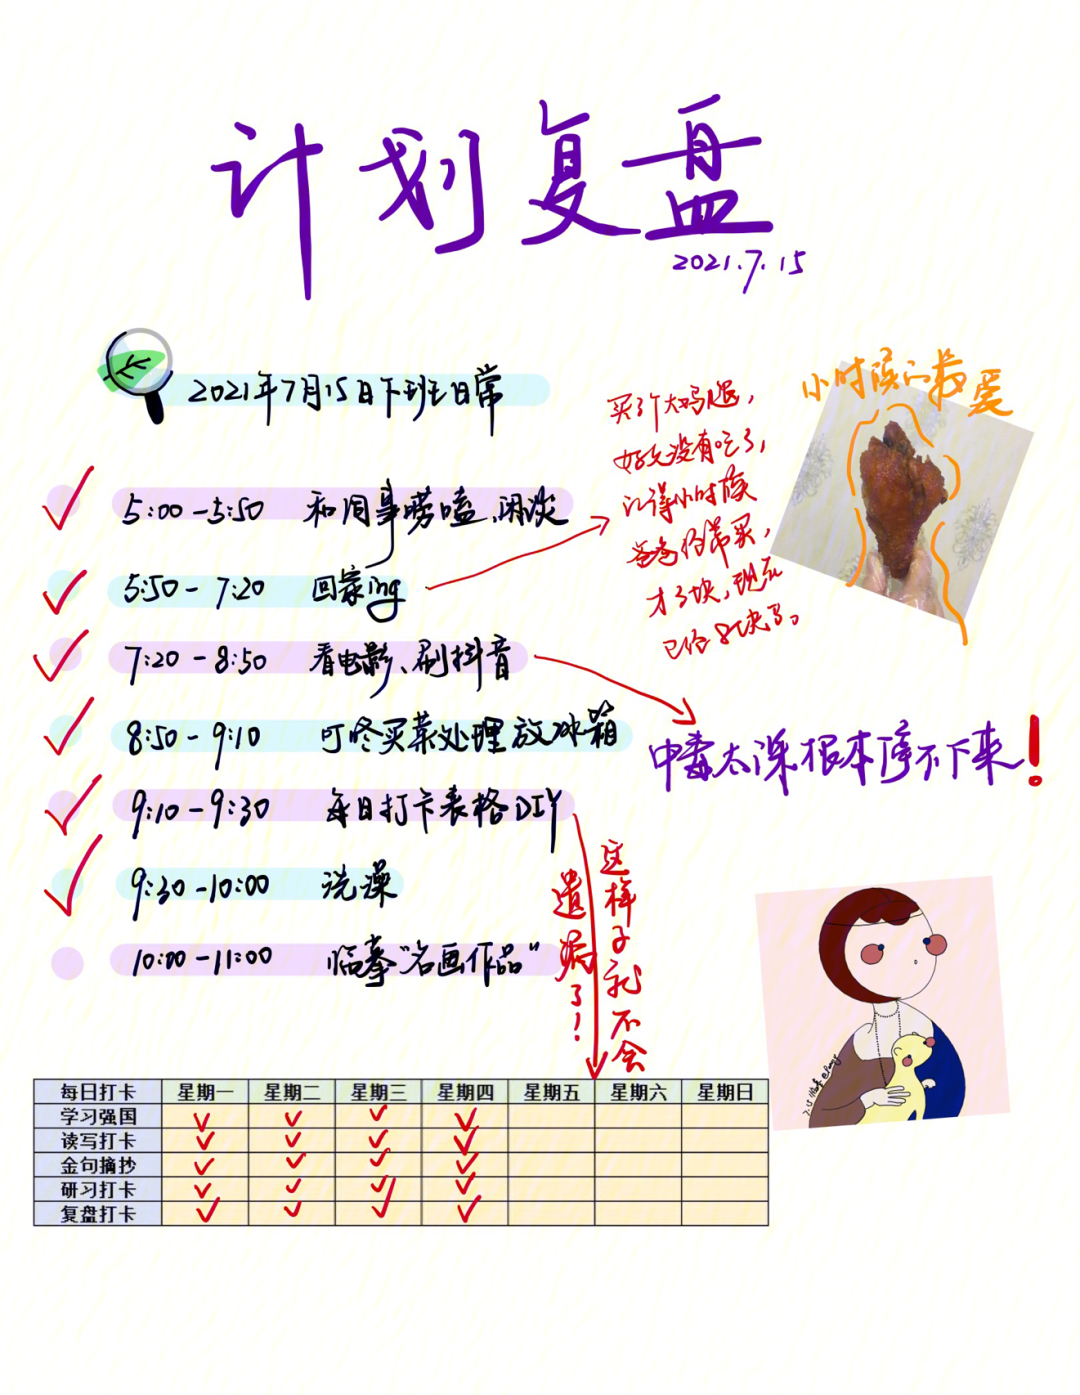 计划复盘
2021.7.15
2021年7月15日下班日常
5:00-5:50 和同事唠嗑、闲谈
5:50-7:20 回家ing
7:20-8:50 看电影、刷抖音
8:50-9:10 叮咚买菜处理放冰箱
9:10-9:30 每日打卡表格DIY
9:30-10:00 洗澡
10:00-11:00 临摹“名画作品”
小时候的最爱
买了个大鸡腿,
好久没有吃了,
记得小时候
爸爸经常买,
才3块,现在
已经8块了。
中毒太深根本停不下来!
这样子就不会
遗漏了!
每日打卡 星期一 星期二 星期三 星期四 星期五 星期六 星期日
学习强国
读写打卡
金句摘抄
研习打卡
复盘打卡